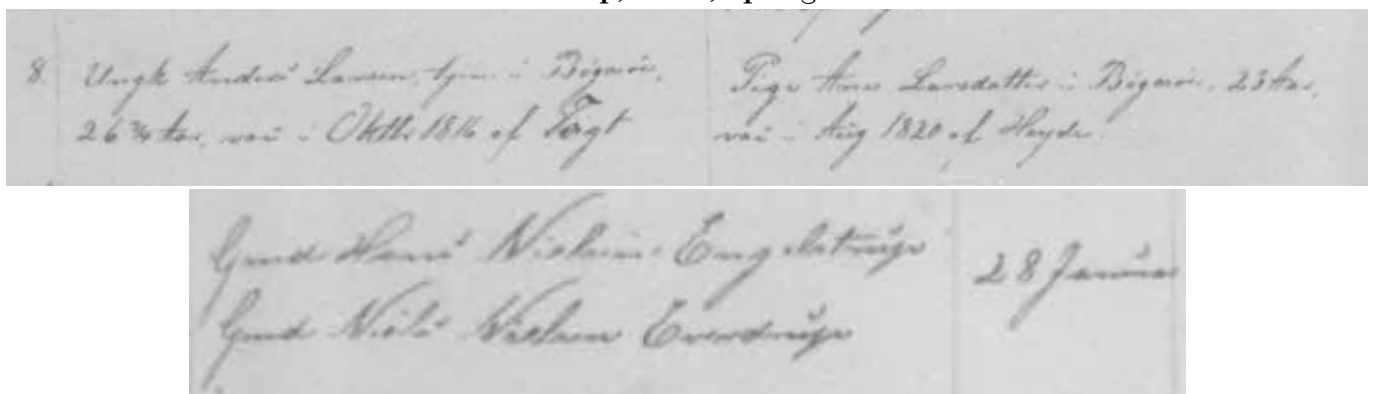 8. Ungk Anders Larsen, tjen i Bøgesøe,
26 3/4 Aar, vac i Oktbr 1816 af Voigt
Pige Ane Larsdatter i Bøgesøe, 23 Aar,
vac i Aug 1820 af Heyde.
Gmd Hans Nielsen Engelstrup
Gmd Niels Nielsen Everdrup
28 Januar